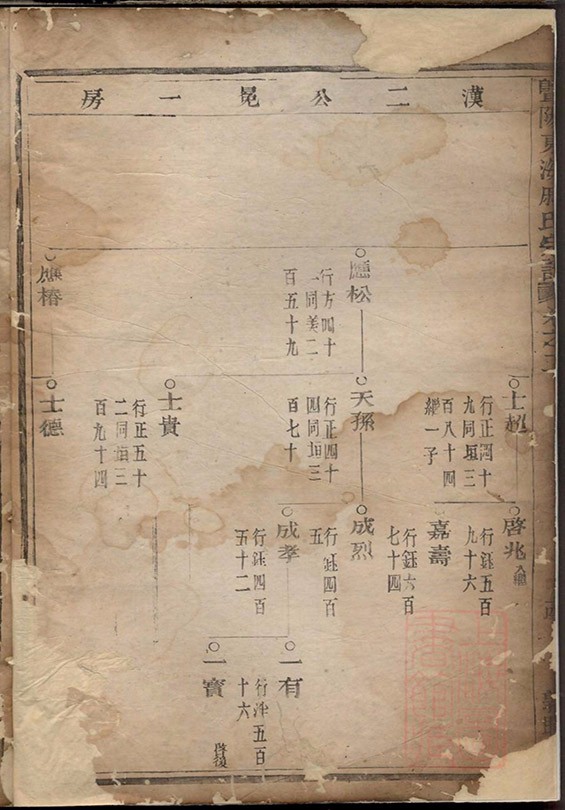 漢二公冕一房
應松
行方四十
一同美二
百五十九
應椿
士超
行正四十
九同垣三
百八十四
繼一子
天孫
行正四十
四同垣三
百七十
士貴
行正五十
二同垣三
百九十四
士德
啓兆
行鈺五百
九十六
嘉壽
行鈺六百
七十四
成烈
行鈺四百
五
成孝
行鈺四百
五十二
一有
行洋五百
十六
一寳